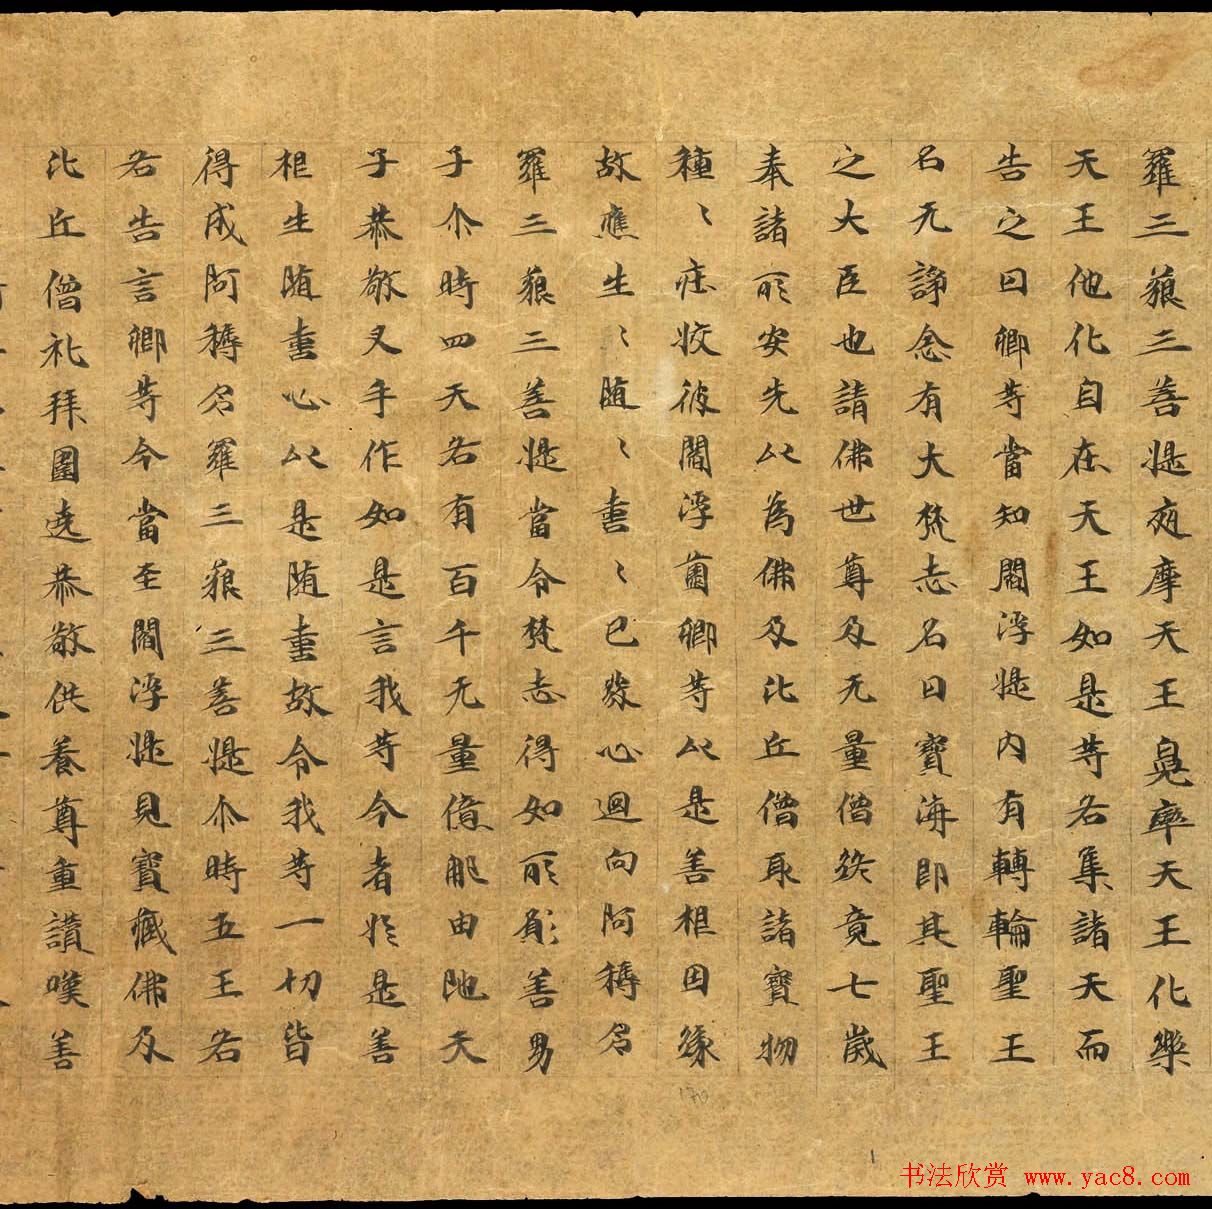 羅三藐三菩提夜摩天王兜率天王化樂
天王他化自在天王如是等各集諸天而
告之曰卿等當知閻浮提內有轉輪聖王
名无諍念有大梵志名曰寶海即其聖王
之大臣也請佛世尊及无量僧終竟七歲
奉諸所安先以為佛及比丘僧取諸寶物
種〻莊挍彼閻浮薗卿等以是善相因緣
故應生〻随〻憙〻已發心迴向阿耨多
羅三藐三菩提當令梵志得如所願善男
子尒時四天各有百千无量億那由他天
子恭敬叉手作如是言我等今者於是善
相生随憙心以是随憙故令我等一切皆
得成阿耨多羅三藐三菩提尒時五王各
各告言卿等今當至閻浮提見寶藏佛及
比丘僧礼拜圍遶恭敬供養尊重讚嘆善
书法欣赏 www.yac8.com